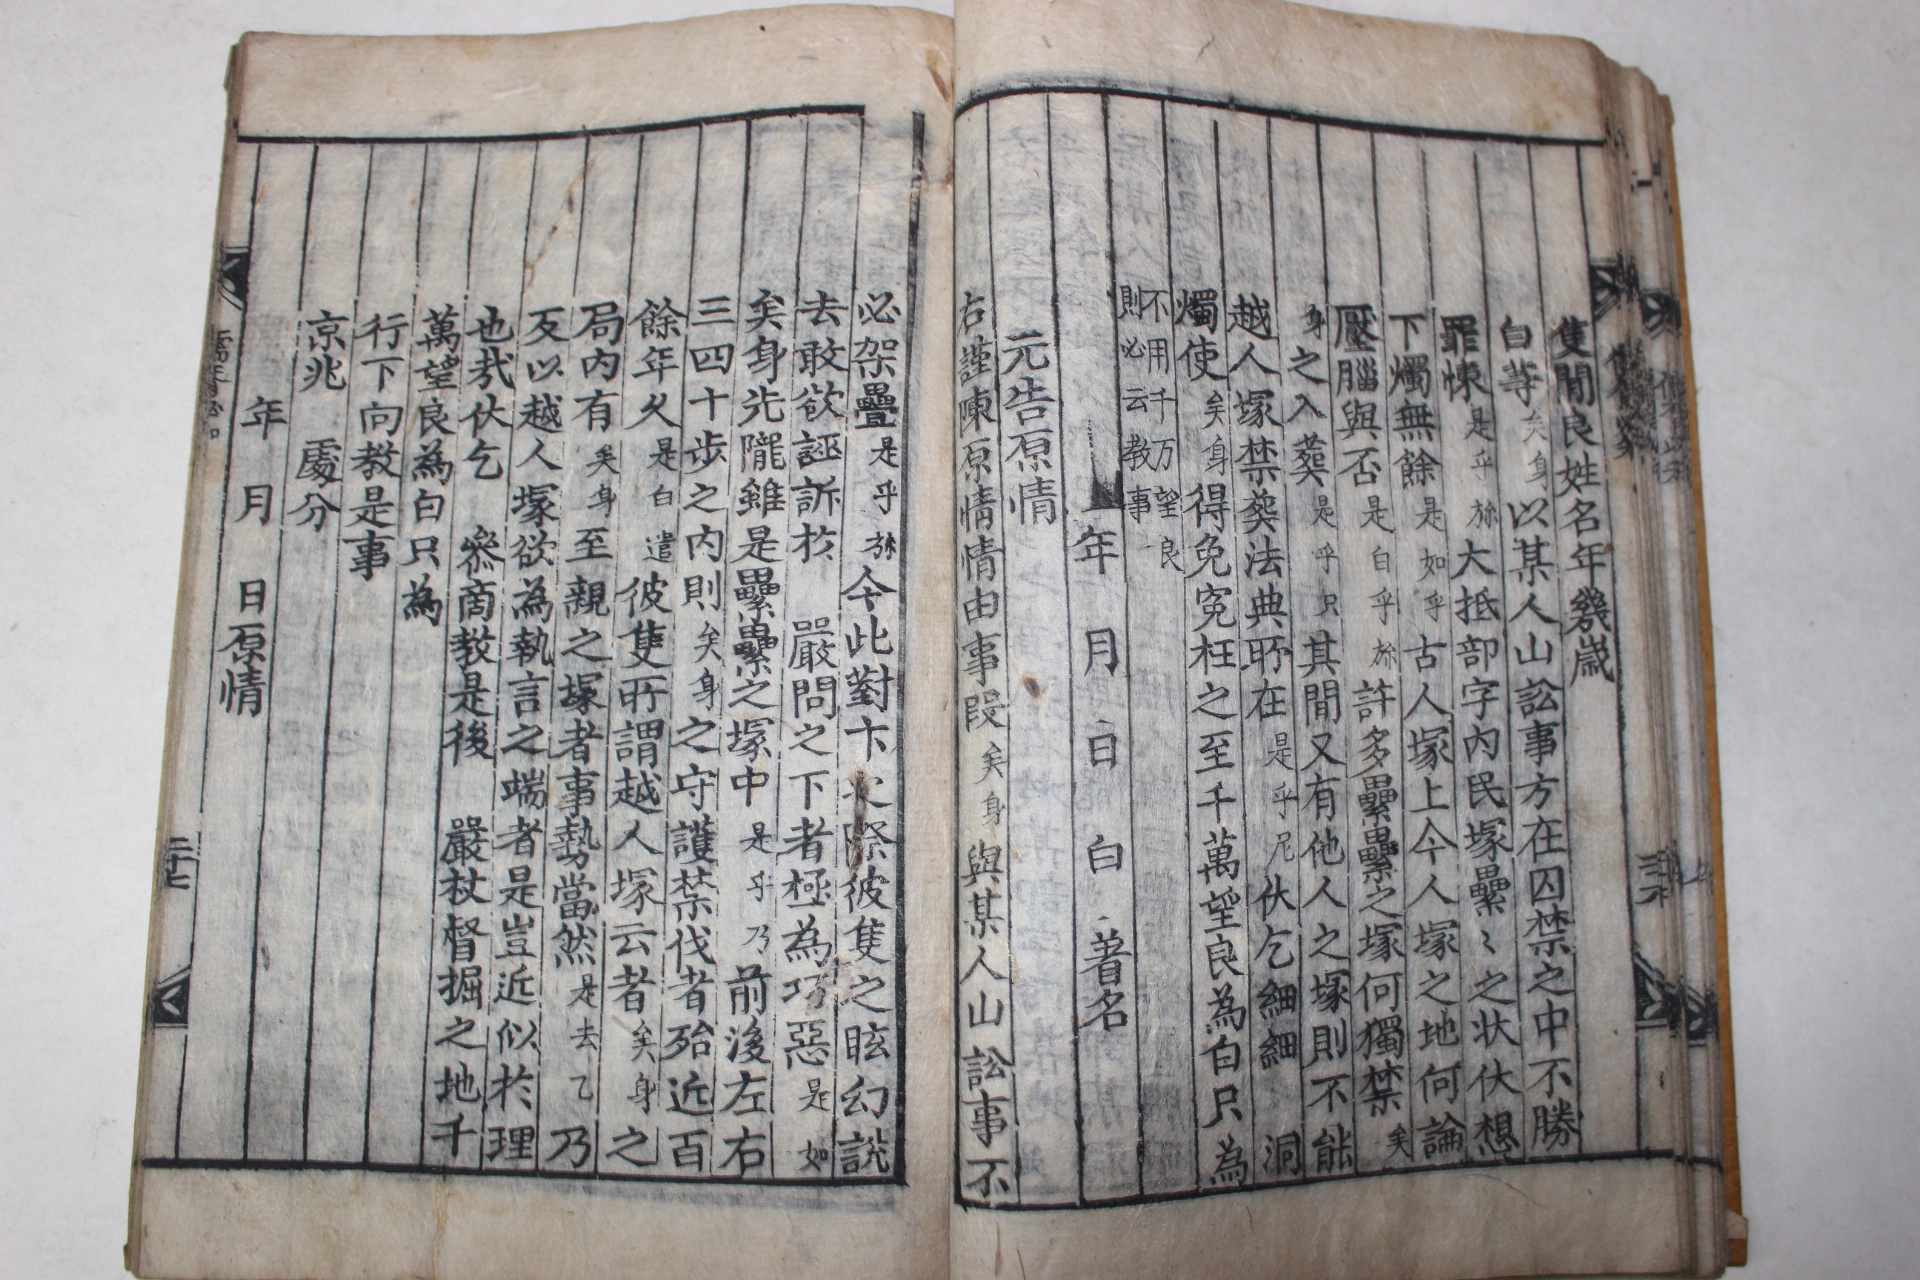 隻閒良姓名年幾歲
白等矣身以某人山訟事方在囚禁之中不勝
罪悚是乎旀大抵部字內民塚纍〻之状伏想
下燭無餘是如乎古人塚上今人塚之地何論
壓腦與否是白乎旀許多纍纍之塚何獨禁矣
身之入葬是乎只其間又有他人之塚則不能
越人塚禁葬法典所在是乎尼伏乞細細 洞
燭使矣身得免寃枉之至千萬望良為白只為
不用千万望良
則必云教事
年月日白 着名
元告原情
右謹陳原情情由事段矣身與某人山訟事不
必架疊是乎旀今此對卞之際彼隻之眩幻說
去敢欲誣訴於 嚴問之下者極為巧惡是如
矣身先隴雖是纍纍之塚中是乎乃前後左右
三四十步之內則矣身之守護禁伐者殆近百
餘年久是白遣彼隻所謂越人塚云者矣身之
局內有矣身至親之塚者事勢當然是去乙乃
反以越人塚欲為執言之端者是豈近似於理
也㢤伏乞 叅商教是後 嚴杖督掘之地千
萬望良為白只為
行下向教是事
京兆 處分
年 月 日原情
二十七